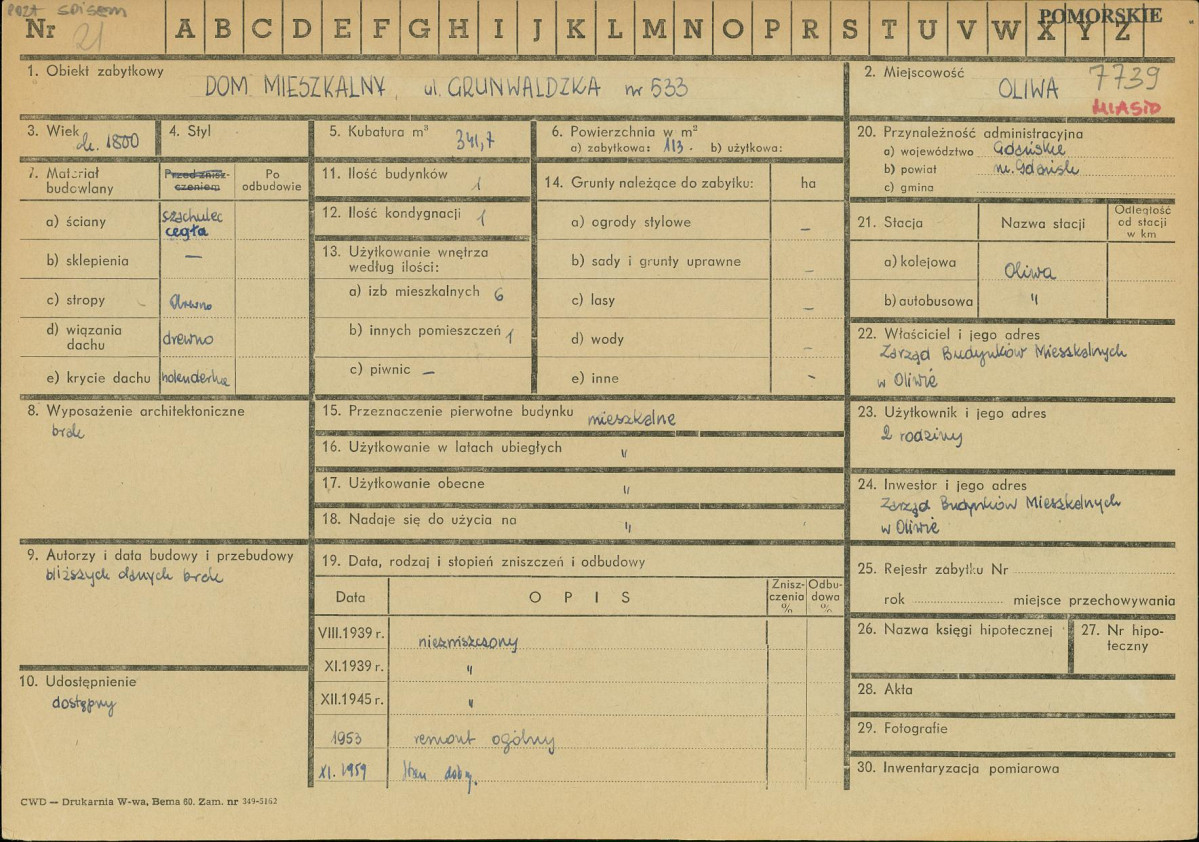 POZA SPISEM
POMORSKIE
Nr 21 A B C D E F G H I J K L M N O P R S T U V W X Y Z
1. Obiekt zabytkowy
DOM MIESZKALNY, ul. GRUNWALDZKA nr 533
2. Miejscowość
OLIWA
7739
MIASTO
3. Wiek
ok. 1800
4. Styl
5. Kubatura m³
341,7
6. Powierzchnia w m²
a) zabytkowa: 113. b) użytkowa:
7. Materiał budowlany
Przed zniszczeniem
Po odbudowie
a) ściany szachulec cegła
b) sklepienia —
c) stropy drewno
d) wiązania dachu drewno
e) krycie dachu holenderka
8. Wyposażenie architektoniczne
brak
9. Autorzy i data budowy i przebudowy
bliższych danych brak
10. Udostępnienie
dostępny
11. Ilość budynków 1
12. Ilość kondygnacji 1
13. Użytkowanie wnętrza
według ilości:
a) izb mieszkalnych 6
b) innych pomieszczeń 1
c) piwnic —
14. Grunty należące do zabytku: ha
a) ogrody stylowe —
b) sady i grunty uprawne —
c) lasy —
d) wody —
e) inne -
15. Przeznaczenie pierwotne budynku mieszkalne
16. Użytkowanie w latach ubiegłych "
17. Użytkowanie obecne "
18. Nadaje się do użycia na "
19. Data, rodzaj i stopień zniszczeń i odbudowy
Data OPIS Zniszczenia % Odbudowa %
VIII.1939 r. niezniszczony
XI.1939 r. "
XII.1945 r. "
1953 remont ogólny
XI. 1959 Stan dobry.
20. Przynależność administracyjna
a) województwo Gdańskie
b) powiat m. Gdańsk
c) gmina
21. Stacja Nazwa stacji Odległość od stacji w km
a) kolejowa Oliwa
b) autobusowa "
22. Właściciel i jego adres
Zarząd Budynków Mieszkalnych
w Oliwie
23. Użytkownik i jego adres
2 rodziny
24. Inwestor i jego adres
Zarząd Budynków Mieszkalnych
w Oliwie
25. Rejestr zabytku Nr
rok miejsce przechowywania
26. Nazwa księgi hipotecznej
27. Nr hipoteczny
28. Akta
29. Fotografie
30. Inwentaryzacja pomiarowa
CWD — Drukarnia W-wa, Bema 60. Zam. nr 349-5162